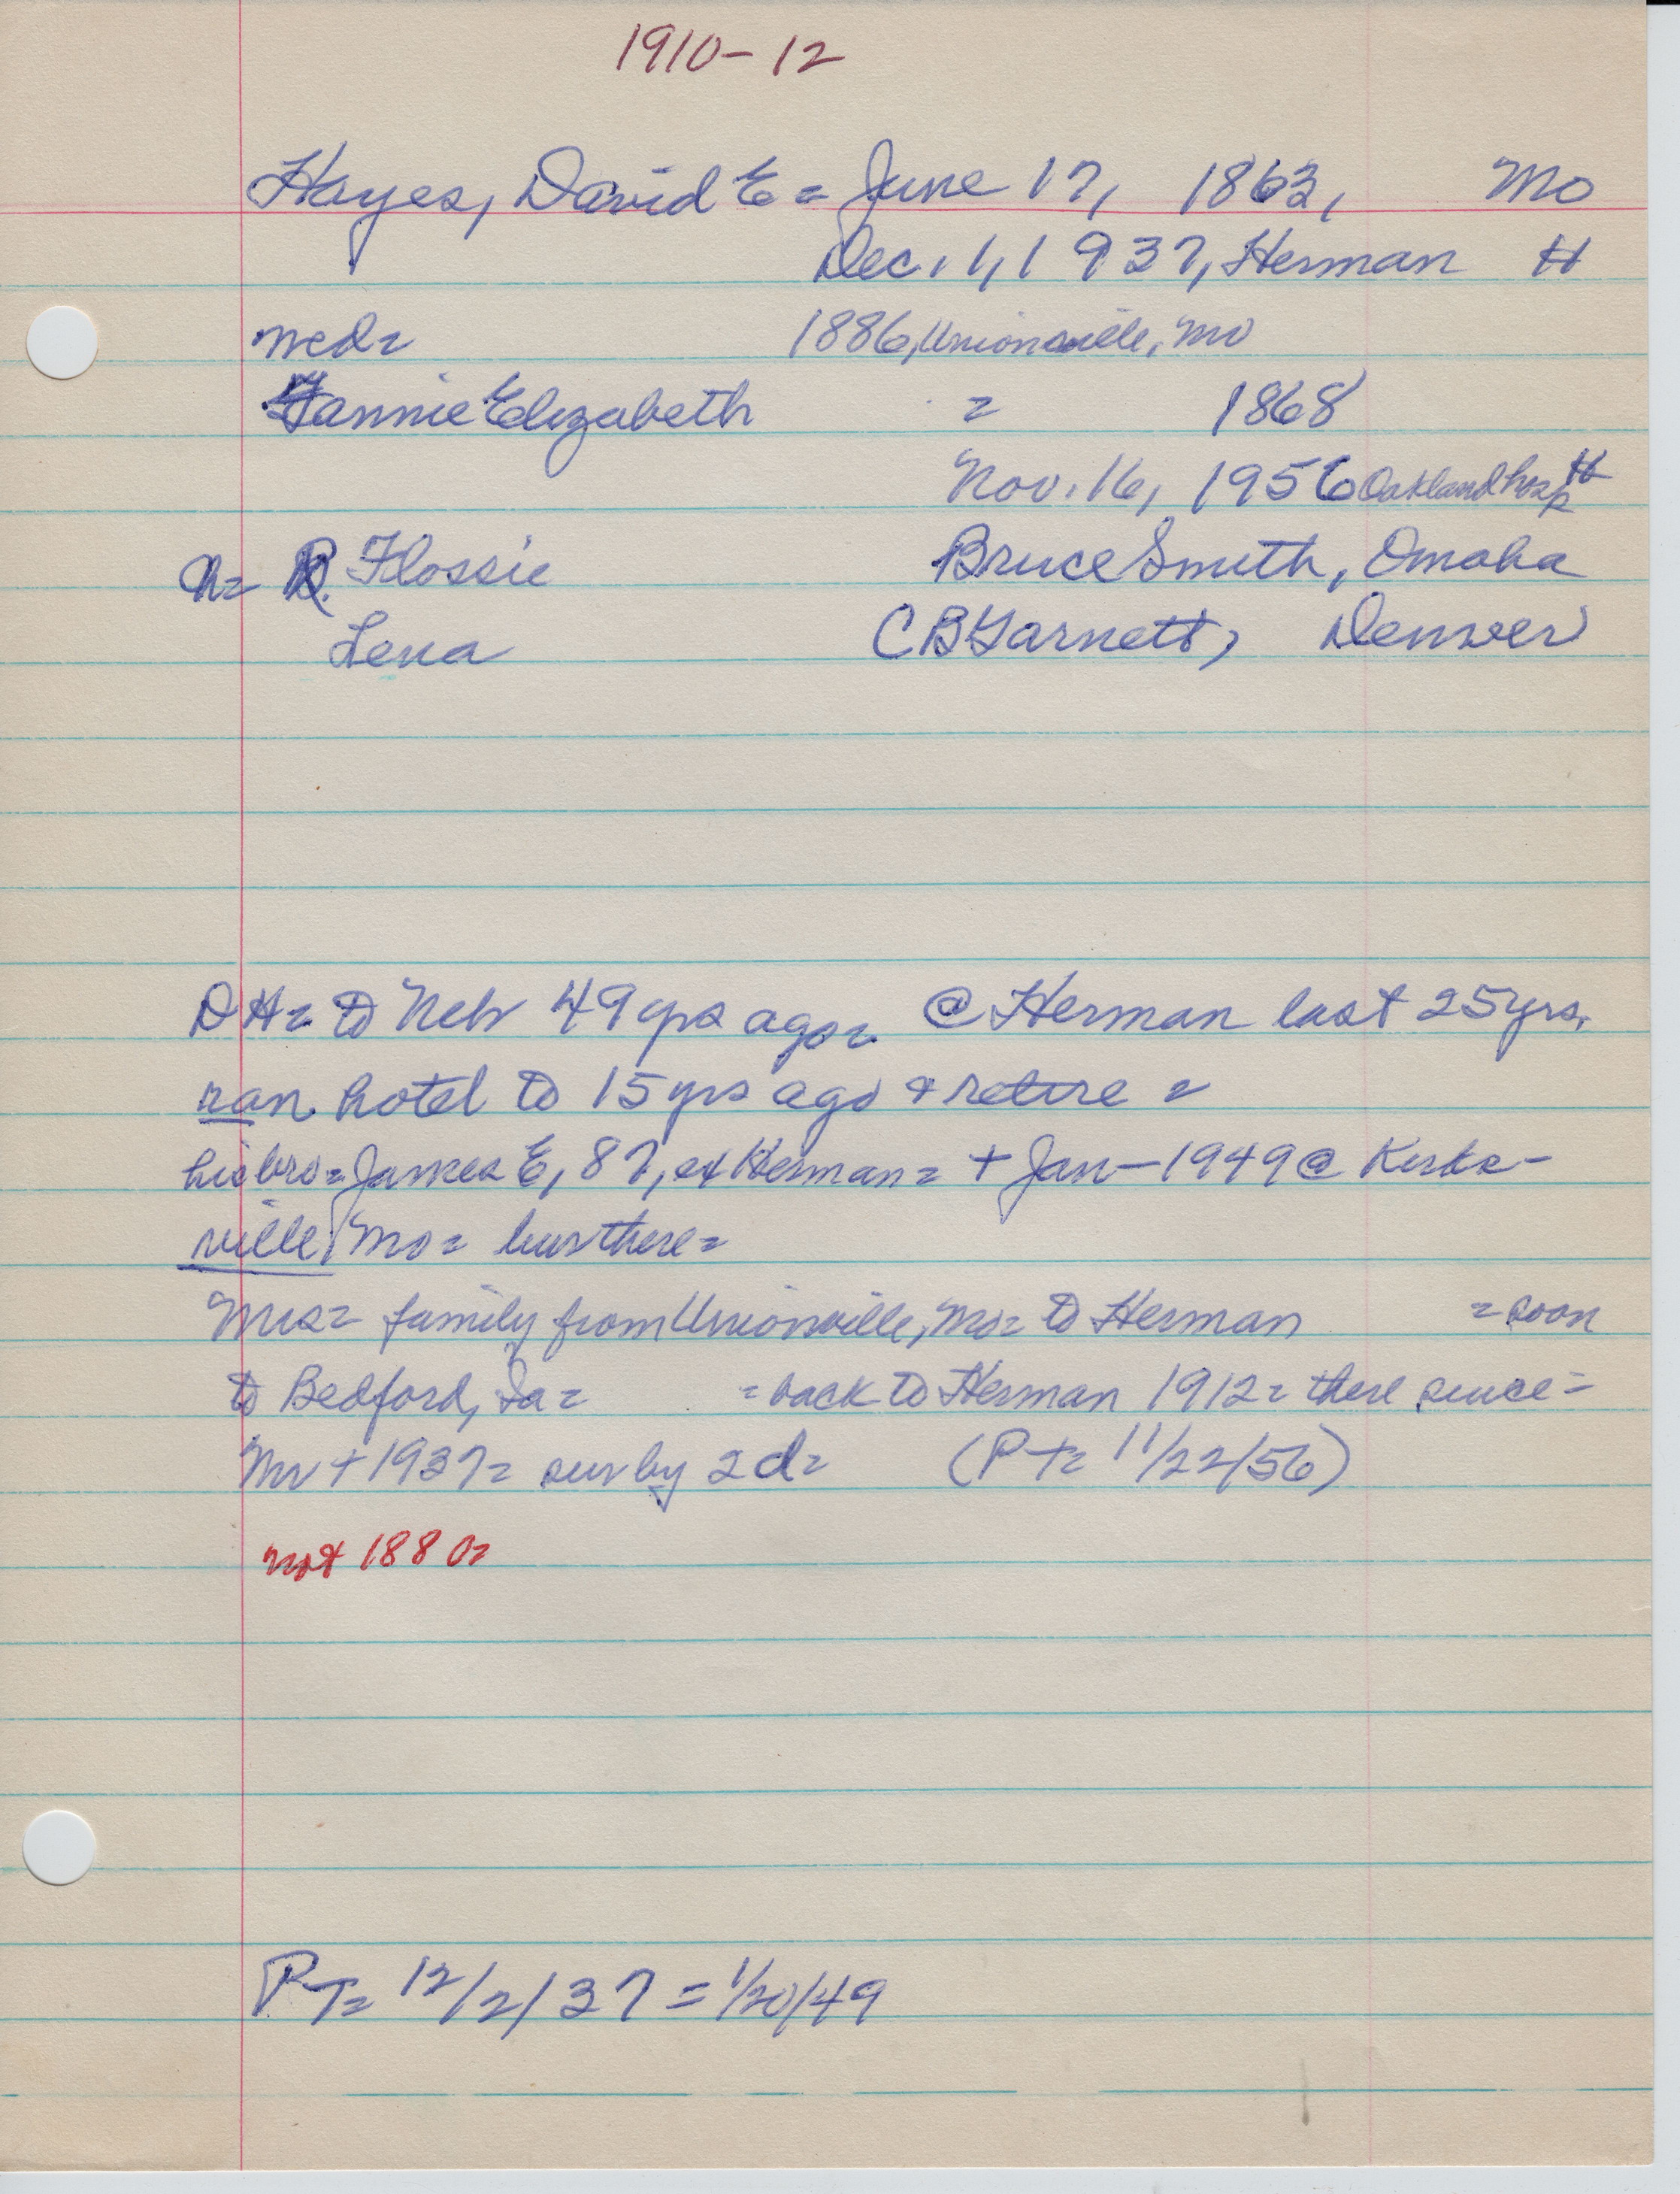 1910-12
Hayes, David E = June 17, 1863, Mo
Dec. 1, 1937, Herman H
wed= 1886, Unionville, Mo
Fannie Elizabeth = 1868
Nov. 16, 1956 Oakland hosp H
n= R. Flossie Bruce Smith, Omaha
Lena C B Garnett, Denver
D H= to Neb 49 yrs ago= @ Herman last 25 yrs,
ran hotel to 15 yrs ago & retire =
his bro= James E, 87, ex Herman= + Jan-1949 @ Kirks-
ville, Mo= bur there=
Mrs= family from Unionville, Mo= to Herman = soon
to Bedford, Ia= =back to Herman 1912= there since=
Mr + 1937= sur by 2 d= (PT= 11/22/56)
not 1880=
PT= 12/2/37 = 1/20/49